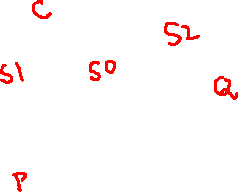 C
S2
S1 S0
Q
P